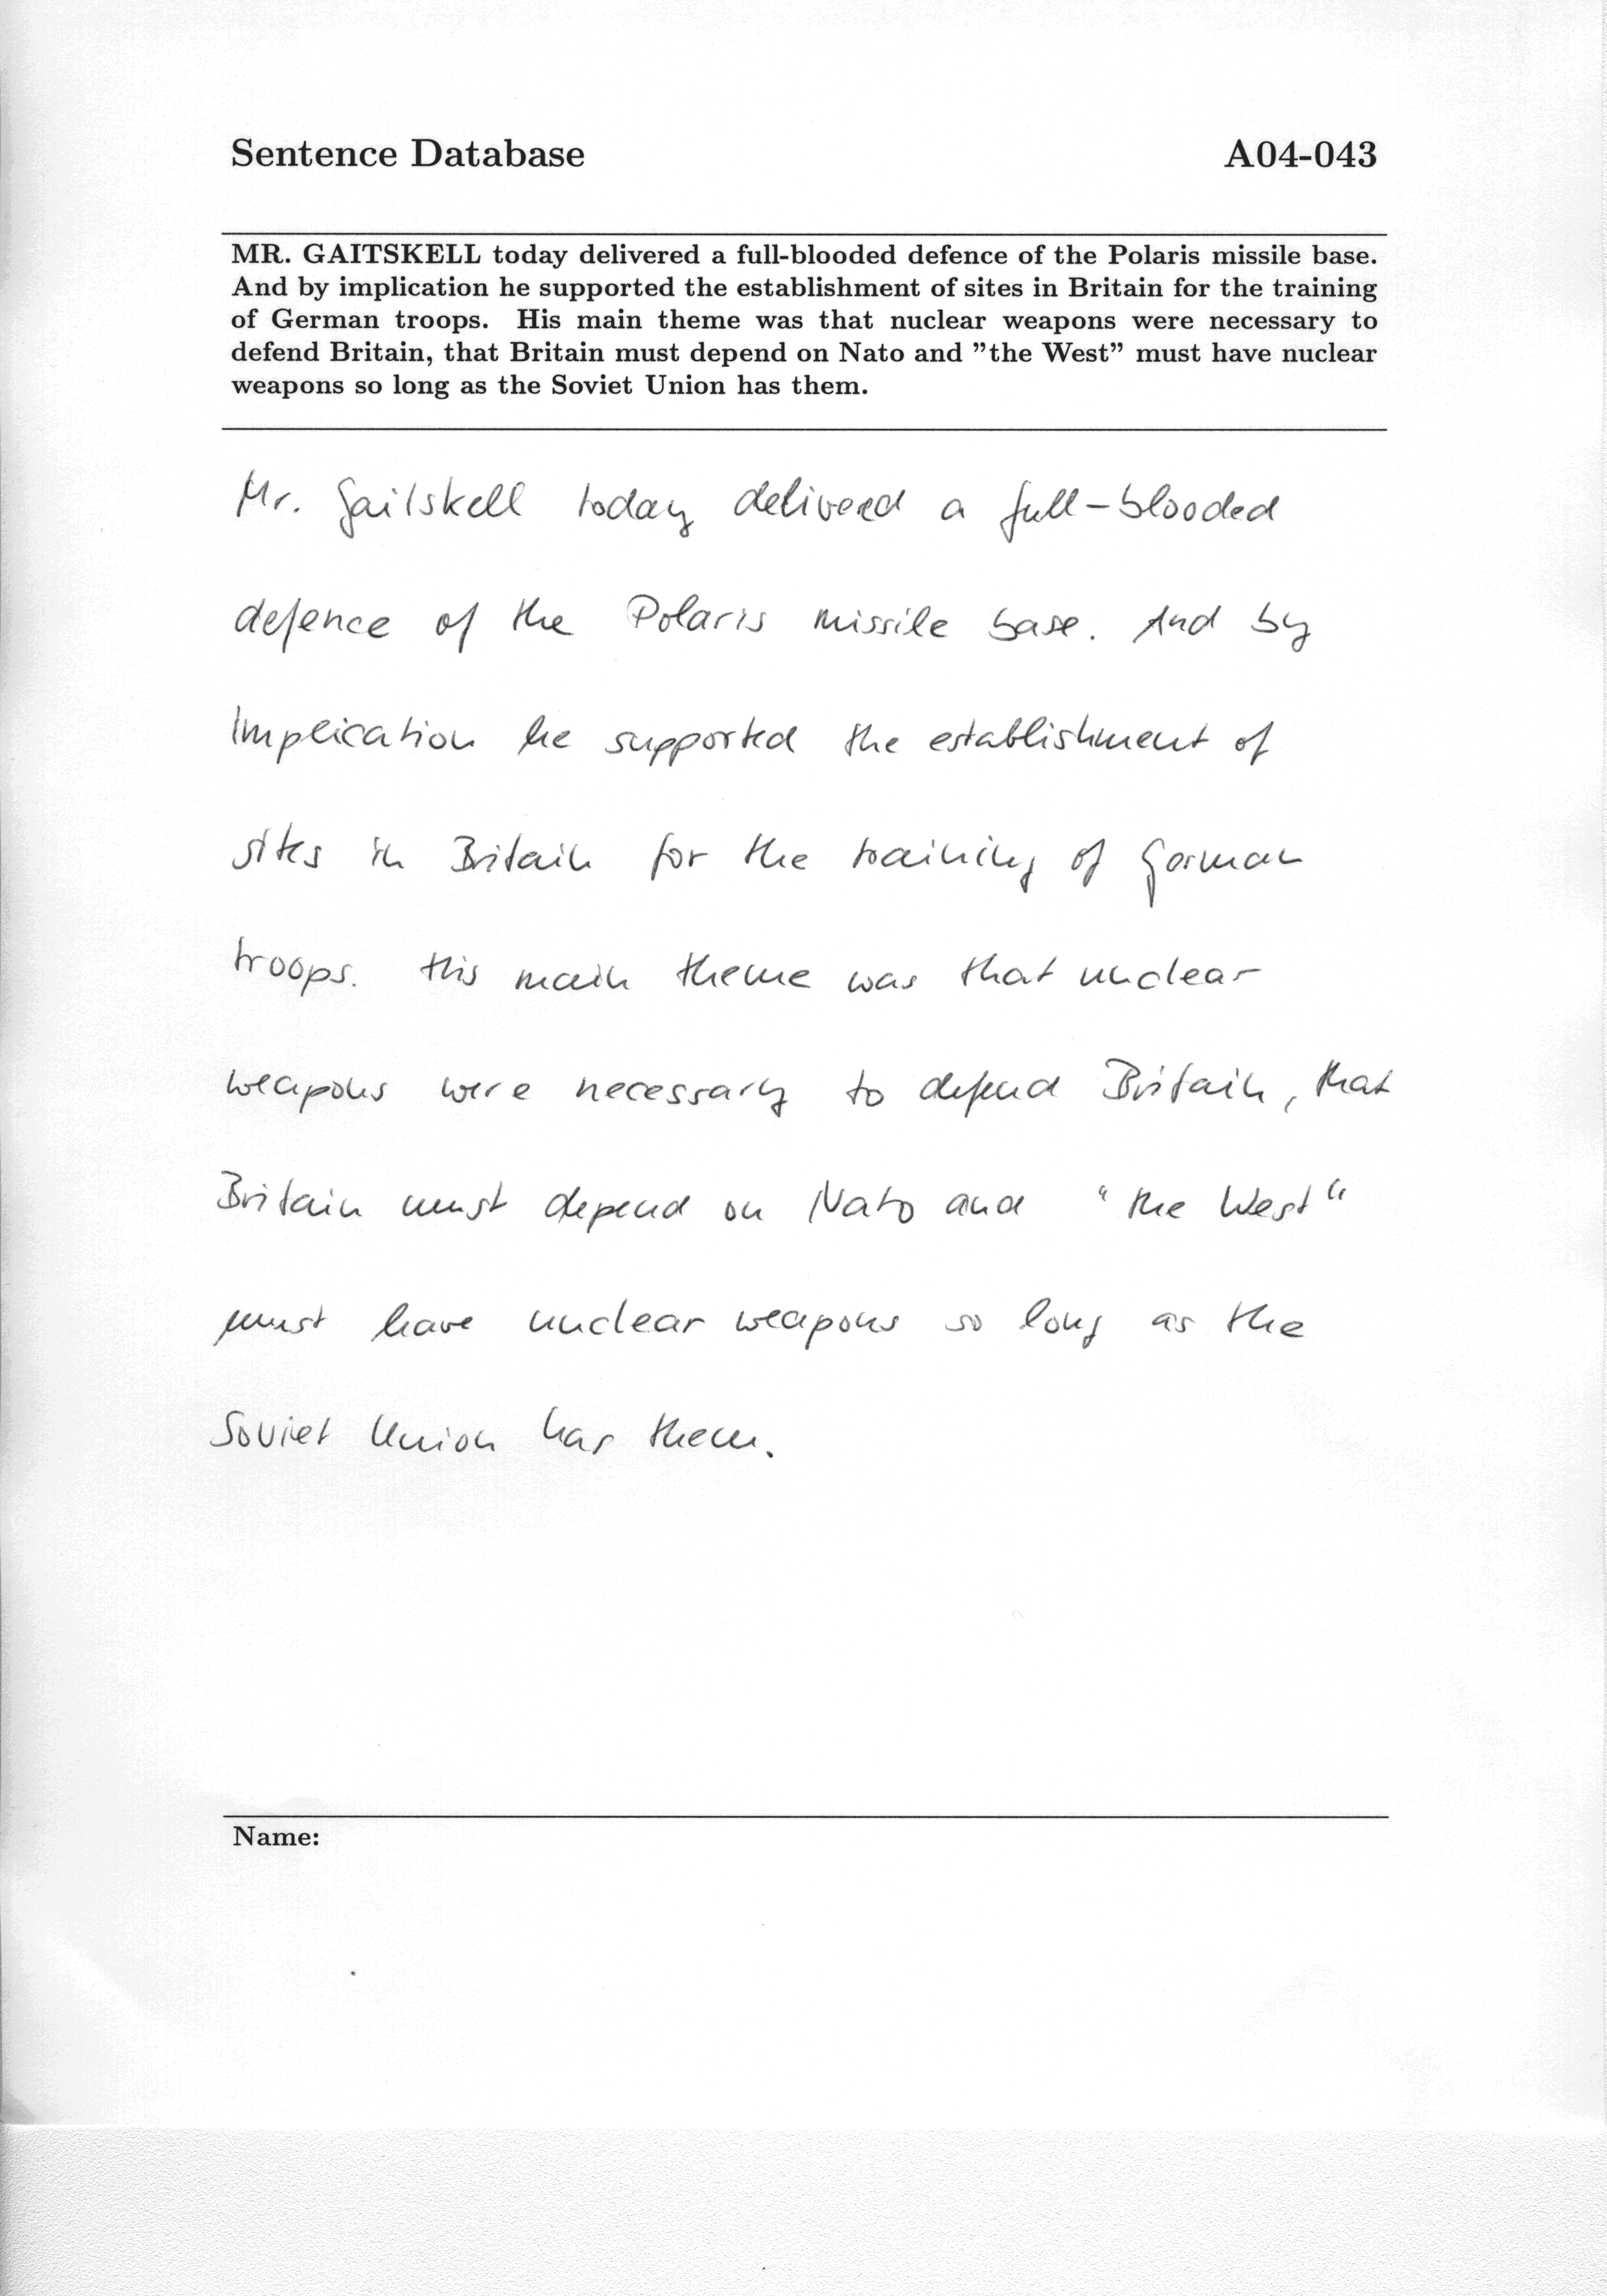 Sentence Database A04-043
MR. GAITSKELL today delivered a full-blooded defence of the Polaris missile base.
And by implication he supported the establishment of sites in Britain for the training
of German troops. His main theme was that nuclear weapons were necessary to
defend Britain, that Britain must depend on Nato and ”the West” must have nuclear
weapons so long as the Soviet Union has them.
Mr. Gaitskell today delivered a full-blooded
defence of the Polaris missile base. And by
implication he supported the establishment of
sites in Britain for the training of German
troops. His main theme was that nuclear
weapons were necessary to defend Britain, that
Britain must depend on Nato and “the West“
must have nuclear weapons so long as the
Soviet Union has them.
Name: